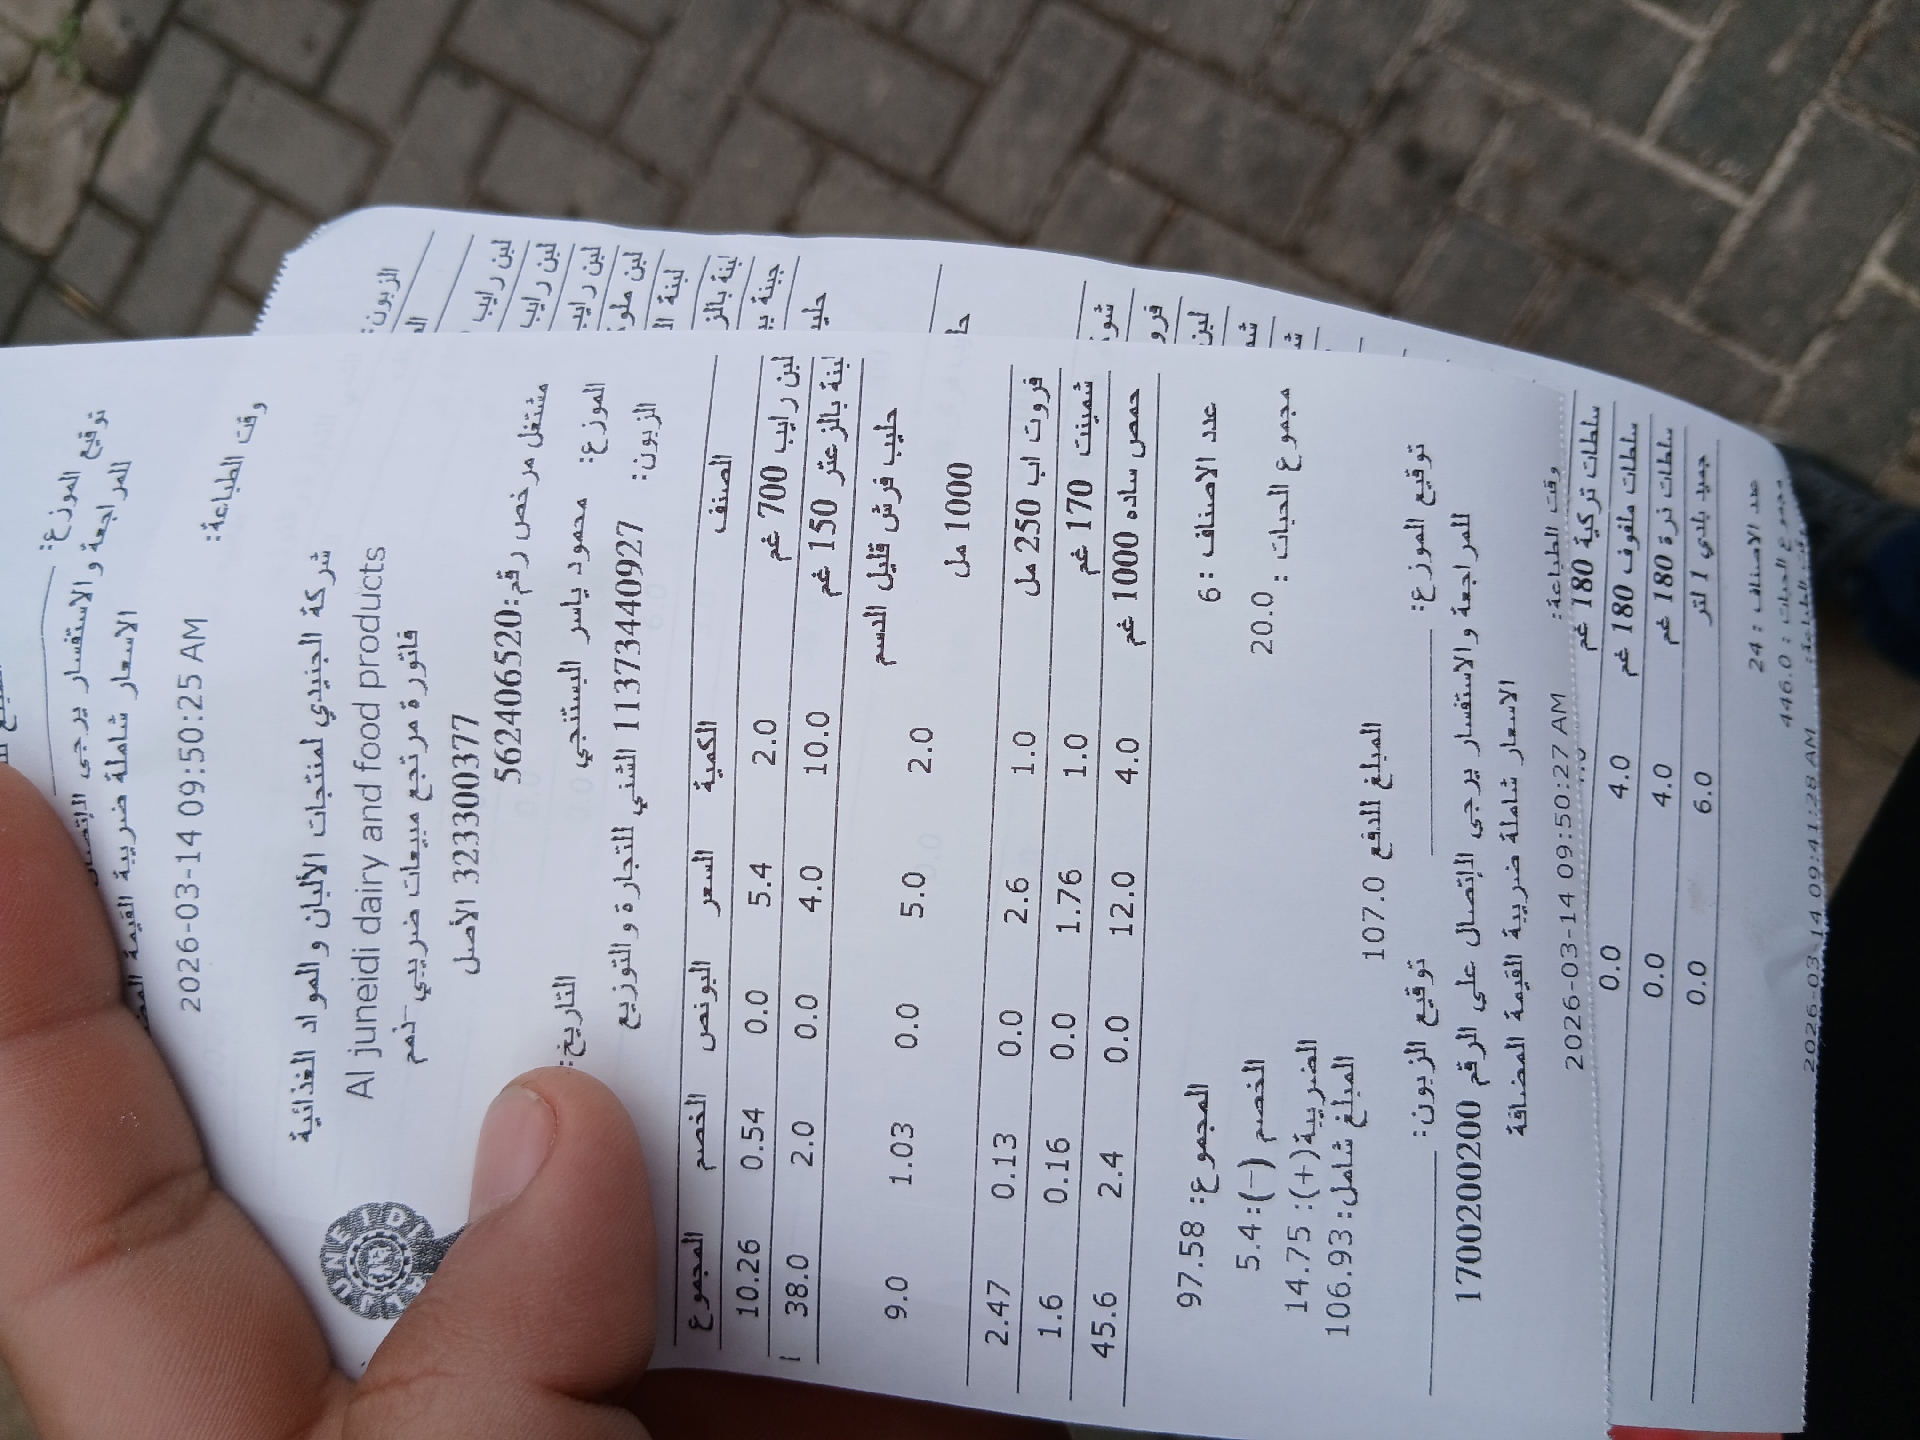 توقيع الموزع:
للمراجعة والاستفسار يرجى الإتصال
الاسعار شاملة ضريبة القيمة
وقت الطباعة: 2026-03-14 09:50:25 AM
JUNEIDI
شركة الجنيدي لمنتجات الألبان والمواد الغذائية
Al juneidi dairy and food products
فاتورة مرتجع مبيعات ضريبي
323300377 الأصل
مشتغل مرخص رقم:562406520
الموزع: محمود ياسر البستنجي التاريخ:
الزبون: 11373440927 الشني للتجارة والتوزيع
الصنف الكمية السعر البونص الخصم المجموع
لبن رايب 700 غم 2.0 5.4 0.0 0.54 10.26
لبنة بالزعتر 150 غم 10.0 4.0 0.0 2.0 38.0
حليب فرش قليل الدسم 1000 مل 2.0 5.0 0.0 1.03 9.0
فروت اب 250 مل 1.0 2.6 0.0 0.13 2.47
شمينت 170 غم 1.0 1.76 0.0 0.16 1.6
حمص ساده 1000 غم 4.0 12.0 0.0 2.4 45.6
عدد الاصناف : 6 المجموع: 97.58
مجموع الحبات : 20.0 الخصم (-):5.4
الضريبة(+): 14.75
المبلغ شامل:106.93
المبلغ للدفع 107.0
توقيع الموزع: توقيع الزبون:
للمراجعة والاستفسار يرجى الإتصال على الرقم 1700200200
الاسعار شاملة ضريبة القيمة المضافة
وقت الطباعة: 2026-03-14 09:50:27 AM
الزبون:
لبن رايب
لبن رايب
لبن رايب
لبنة بالز
سلطات تركية 180 غم
سلطات ملفوف 180 غم 4.0 0.0
سلطات ذرة 180 غم 4.0 0.0
جميد بلدي 1 لتر 6.0 0.0
عدد الاصناف : 24
مجموع الحبات : 446.0
2026-03-14 09:41:28 AM